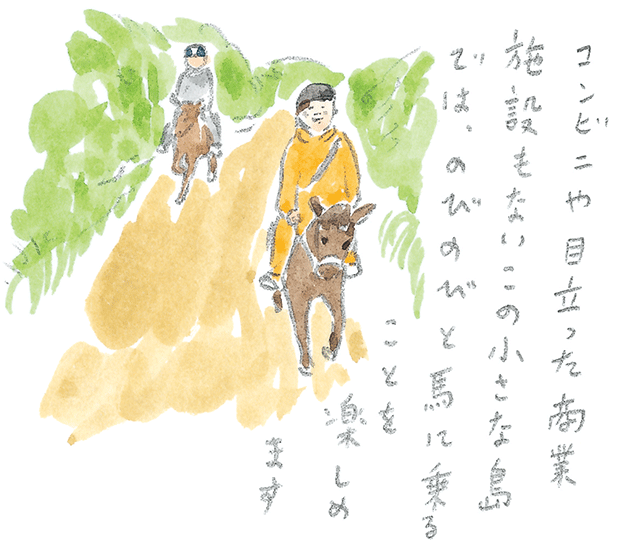 コンビニや目立った商業
施設もないこの小さな島
では、のびのびと馬に乗る
ことを
楽しめ
ます